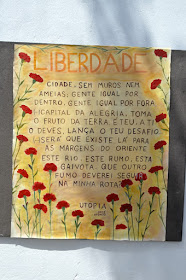 LIBERDADE
CIDADE, SEM MUROS NEM
AMEIAS; GENTE IGUAL POR
DENTRO, GENTE IGUAL POR FORA
CAPITAL DA ALEGRIA, TOMA
O FRUTO DA TERRA. É TEU, A TI
O DEVES, LANÇA O TEU DESAFIO
SERÁ QUE EXISTE LÁ PARA
AS MARGENS DO ORIENTE
ESTE RIO, ESTE RUMO, ESTA
GAIVOTA, QUE OUTRO
FUMO DEVEREI SEGUIR
NA MINHA ROTA?
UTOPIA